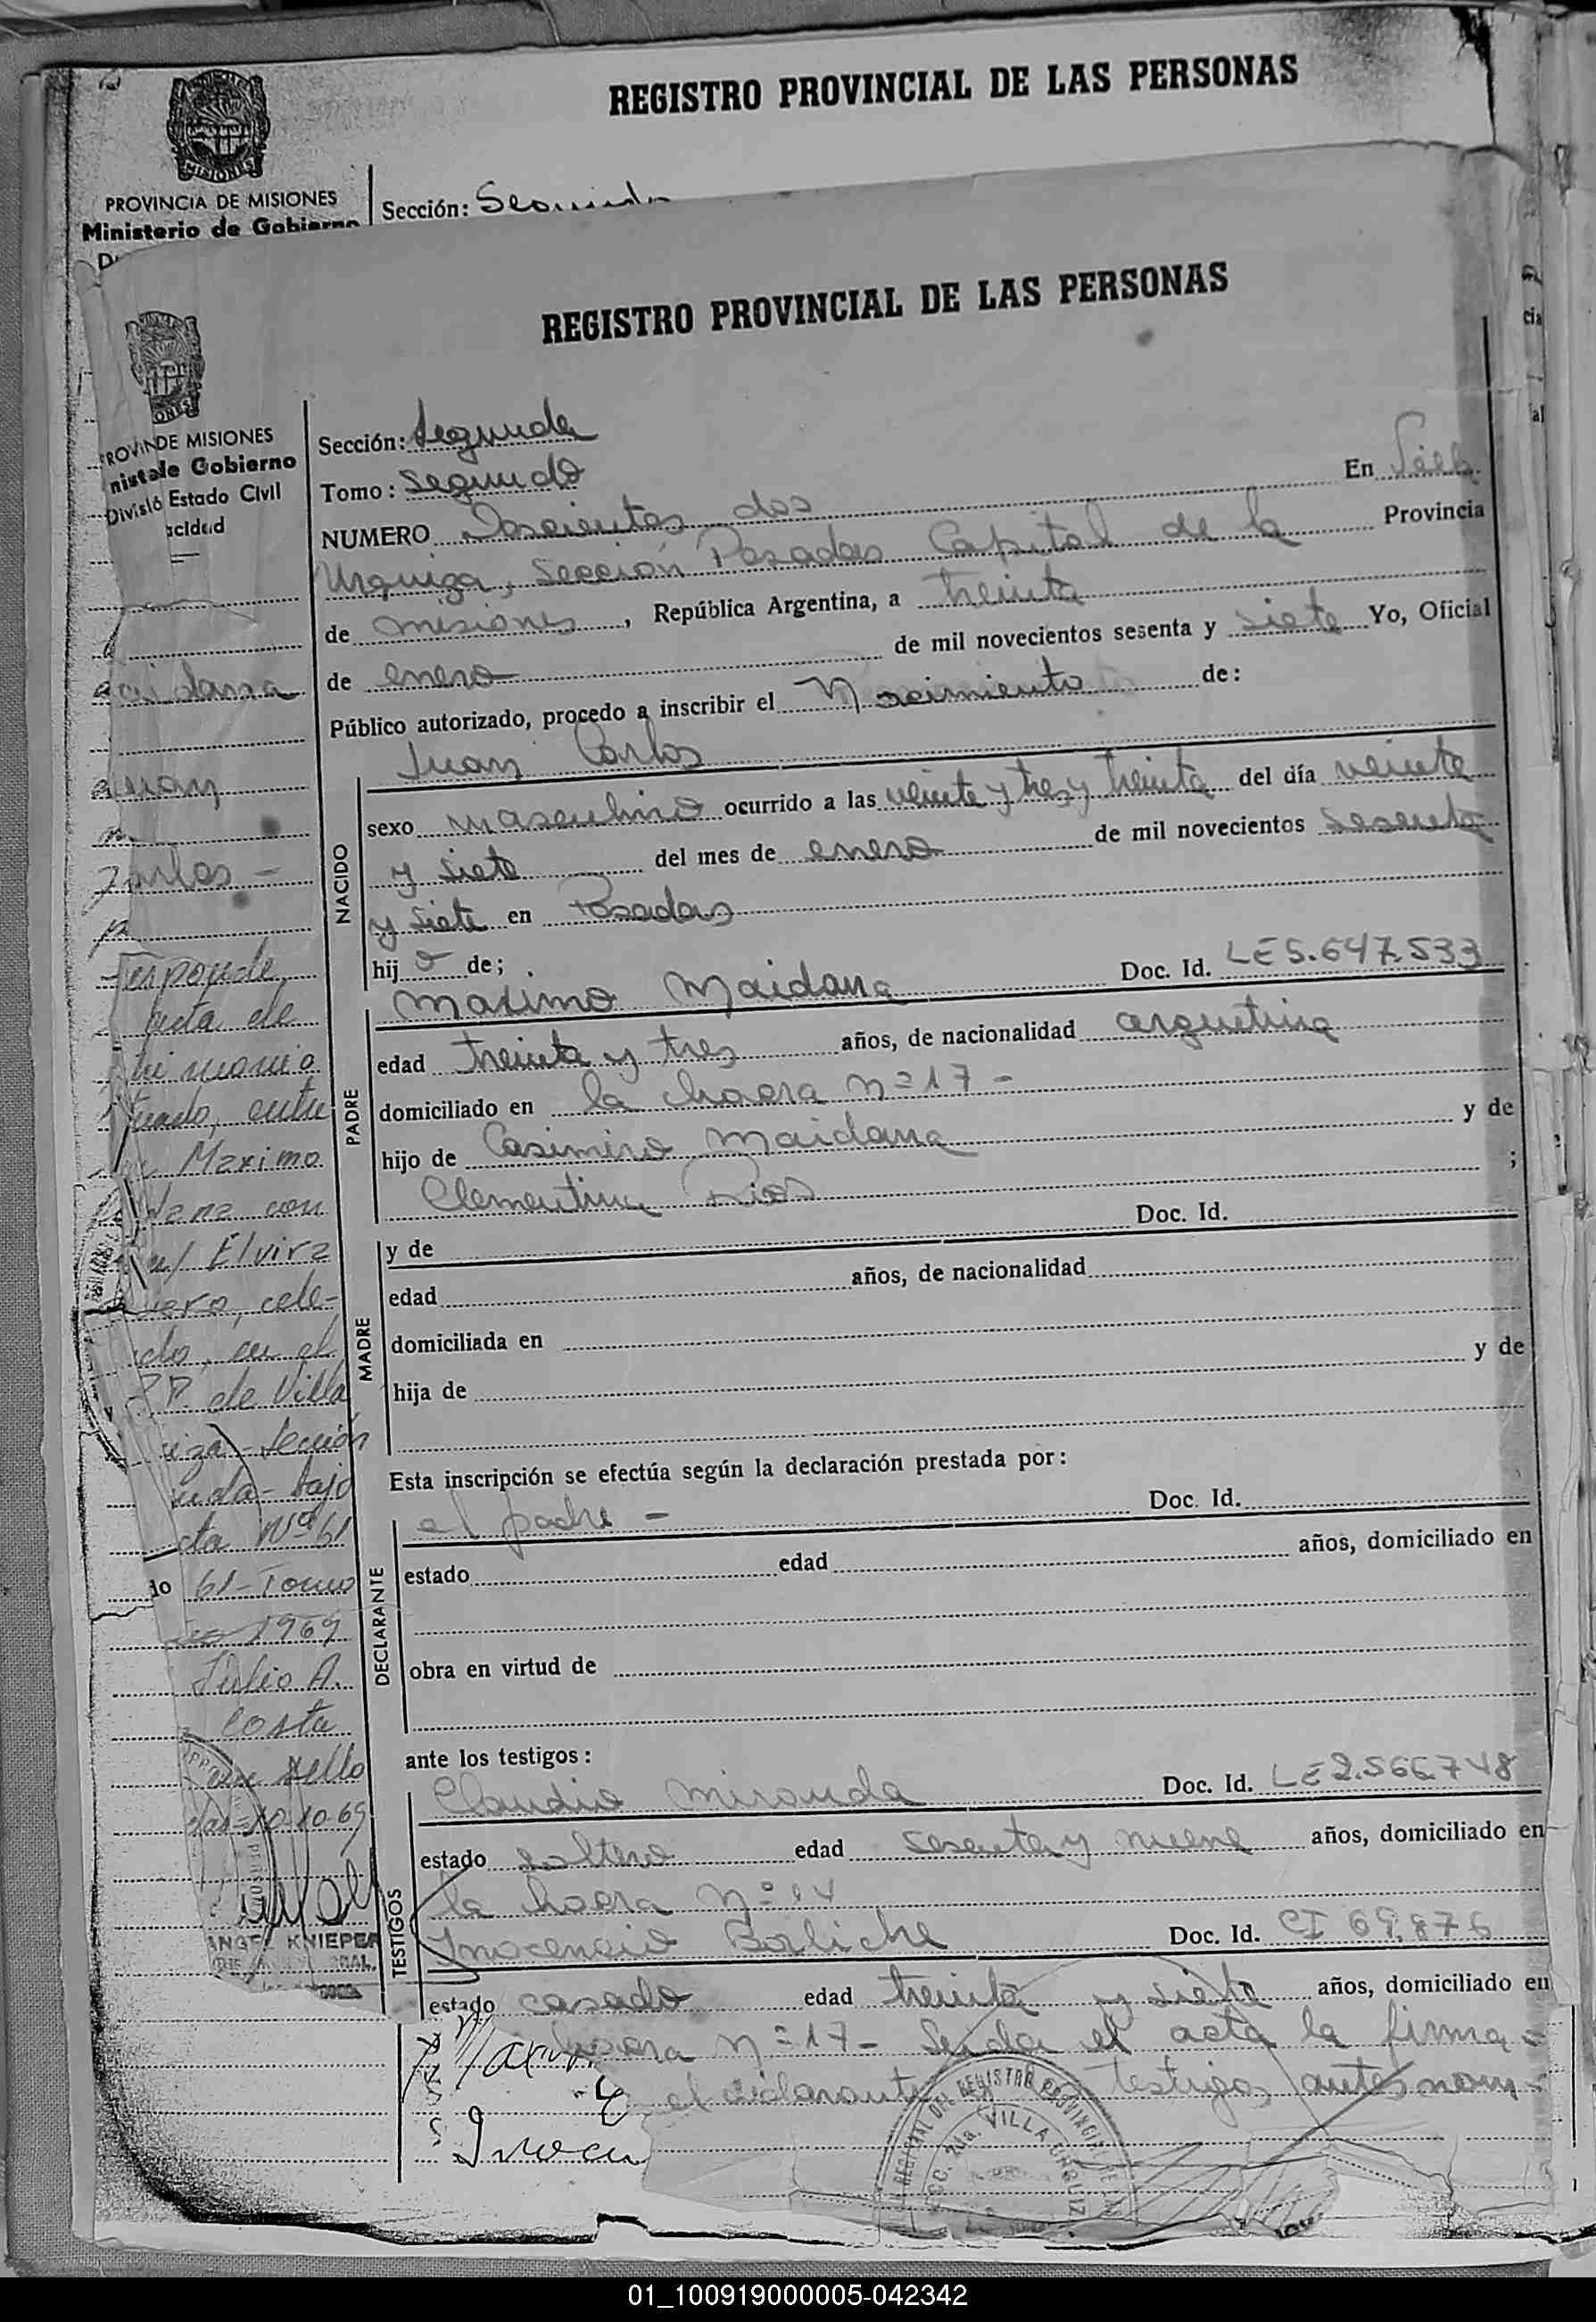 REGISTRO PROVINCIAL DE LAS PERSONAS
MISIONES
PROVINCIA DE MISIONES
Ministerio de Gobierno
Sección:
REGISTRO PROVINCIAL DE LAS PERSONAS
DE MISIONES
Gobierno
Estado Civil
Sección: Segunda
Tomo: Segundo
NUMERO Doscientos dos En
Urquiza, Sección Posadas Capital de la Provincia
de misiones, República Argentina, a treinta
de enero de mil novecientos sesenta y siete Yo, Oficial
Público autorizado, procedo a inscribir el Nacimiento de:
Juan Carlos
NACIDO
sexo masculino ocurrido a las veinte y tres y treinta del día veinte
y siete del mes de enero de mil novecientos sesenta
y siete en Posadas
hijo de;
PADRE
Maximo Maidana Doc. Id. LE 5.647.533
edad treinta y tres años, de nacionalidad argentina
domiciliado en la chacra nº 17 -
hijo de Casimiro Maidana y de
Clementina Rios ;
MADRE
y de Doc. Id.
edad años, de nacionalidad
domiciliada en
hija de y de
Esta inscripción se efectúa según la declaración prestada por:
DECLARANTE
el padre - Doc. Id.
estado edad años, domiciliado en
obra en virtud de
ante los testigos:
TESTIGOS
Claudio Miranda Doc. Id. LE 2.566.748
estado soltero edad sesenta y nueve años, domiciliado en
la chacra nº
Inocencio Doc. Id. CI 69.876
estado casado edad treinta y siete años, domiciliado en
nº 17 - acta la firma
el declarante testigos antes nom-
acta de
entre
Maximo
con
Elvira
cele-
en el
de Villa
Sección
bajo
Nº 61
61 - Tomo
1969
Julio A.
Costa
sello
10-10-69
KNIEPER
2da. VILLA URQUIZA
01_100919000005-042342